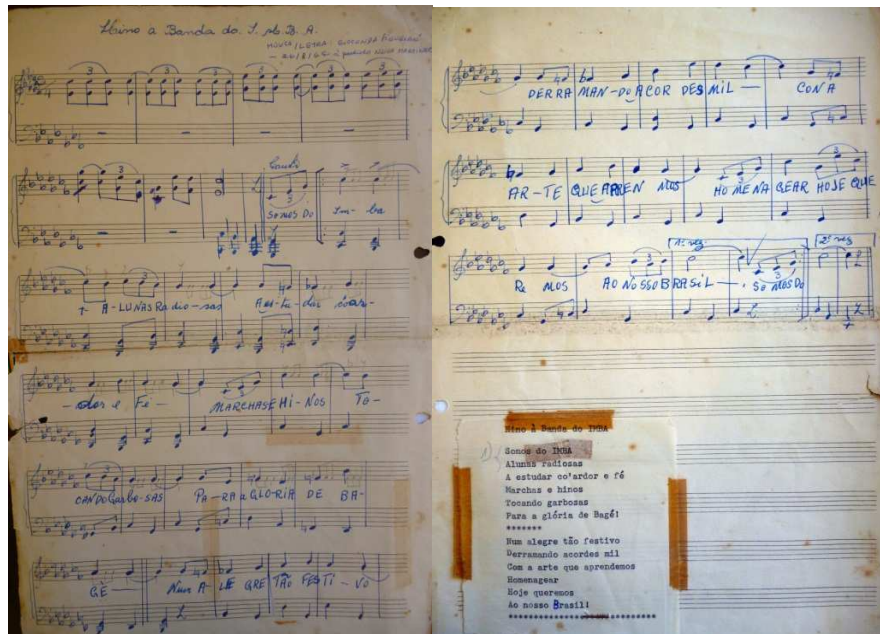 Hino a Banda do I. M. B. A.
MUSICA / LETRA:
3 3 3 3 3 3
3
Canto
SOMOS DO Im - ba
A - LUNAS Radio - sas A es - tu - dar
- dor e Fé - MARCHAS E HI - NOS TO -
CANDO Garbo - SAS PA - RA a GLO - RIA DE BA -
GÉ - Num A - LE GRE TÃO FES TI - VO
DERRA MAN - DO ACOR DES MIL — CON A
AR - TE QUE APREN MOS HO ME NA GEAR HOJE QUE
RE MOS AO NOSSO BRASIL — . SO MOS DO
1ª vez 2ª vez
Hino À Banda do IMBA
Somos do IMBA
Alunas radiosas
A estudar co'ardor e fé
Marchas e hinos
Tocando garbosas
Para a glória de Bagé!
*******
Num alegre tão festivo
Derramando acordes mil
Com a arte que aprendemos
Homenagear
Hoje queremos
Ao nosso Brasil!
**********************